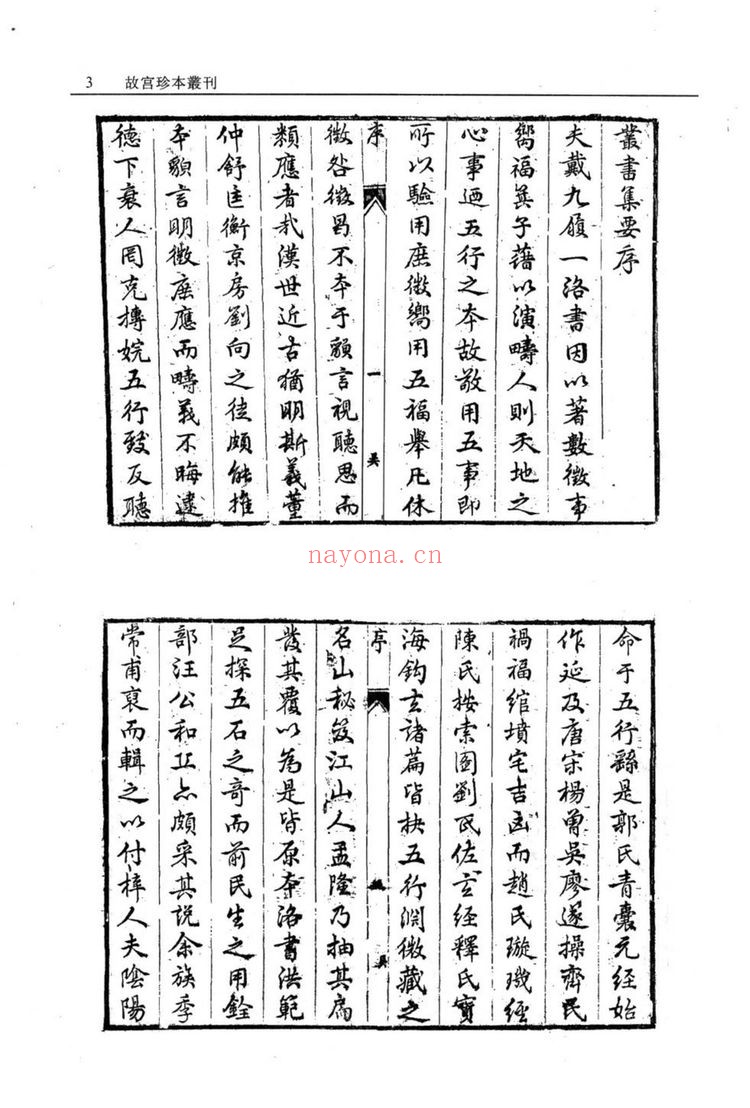 3 故宮珍本叢刊
叢書集要序
夫戴九履一洛書因以著數徵事
嚮福箕子藉以演疇人則天地之
心事迺五行之本故敬用五事即
所以驗用庶徵嚮用五福舉凡休
序 一
徵咎徵曷不本于貌言視聽思而
類應者哉漢世近古猶明斯義董
仲舒匡衡京房劉向之徒頗能推
本貌言明徵庶應而疇義不晦逮
德下衰人罔克摶婉五行致反聽
nayona.cn
命于五行繇是郭氏青囊元經始
作延及唐宋楊曾吳廖遂操齊民
禍福綰墳宅吉凶而趙氏璇璣經
陳氏按索圖劉氏佐玄經釋氏寶
海鈎玄諸篇皆抉五行淵微藏之
序
名山秘笈江山人孟隆乃抽其扃
發其覆以為是皆原本洛書洪範
足探五石之奇而前民生之用銓
部汪公和丘亦頗采其說余族季
常甫裒而輯之以付梓人夫陰陽